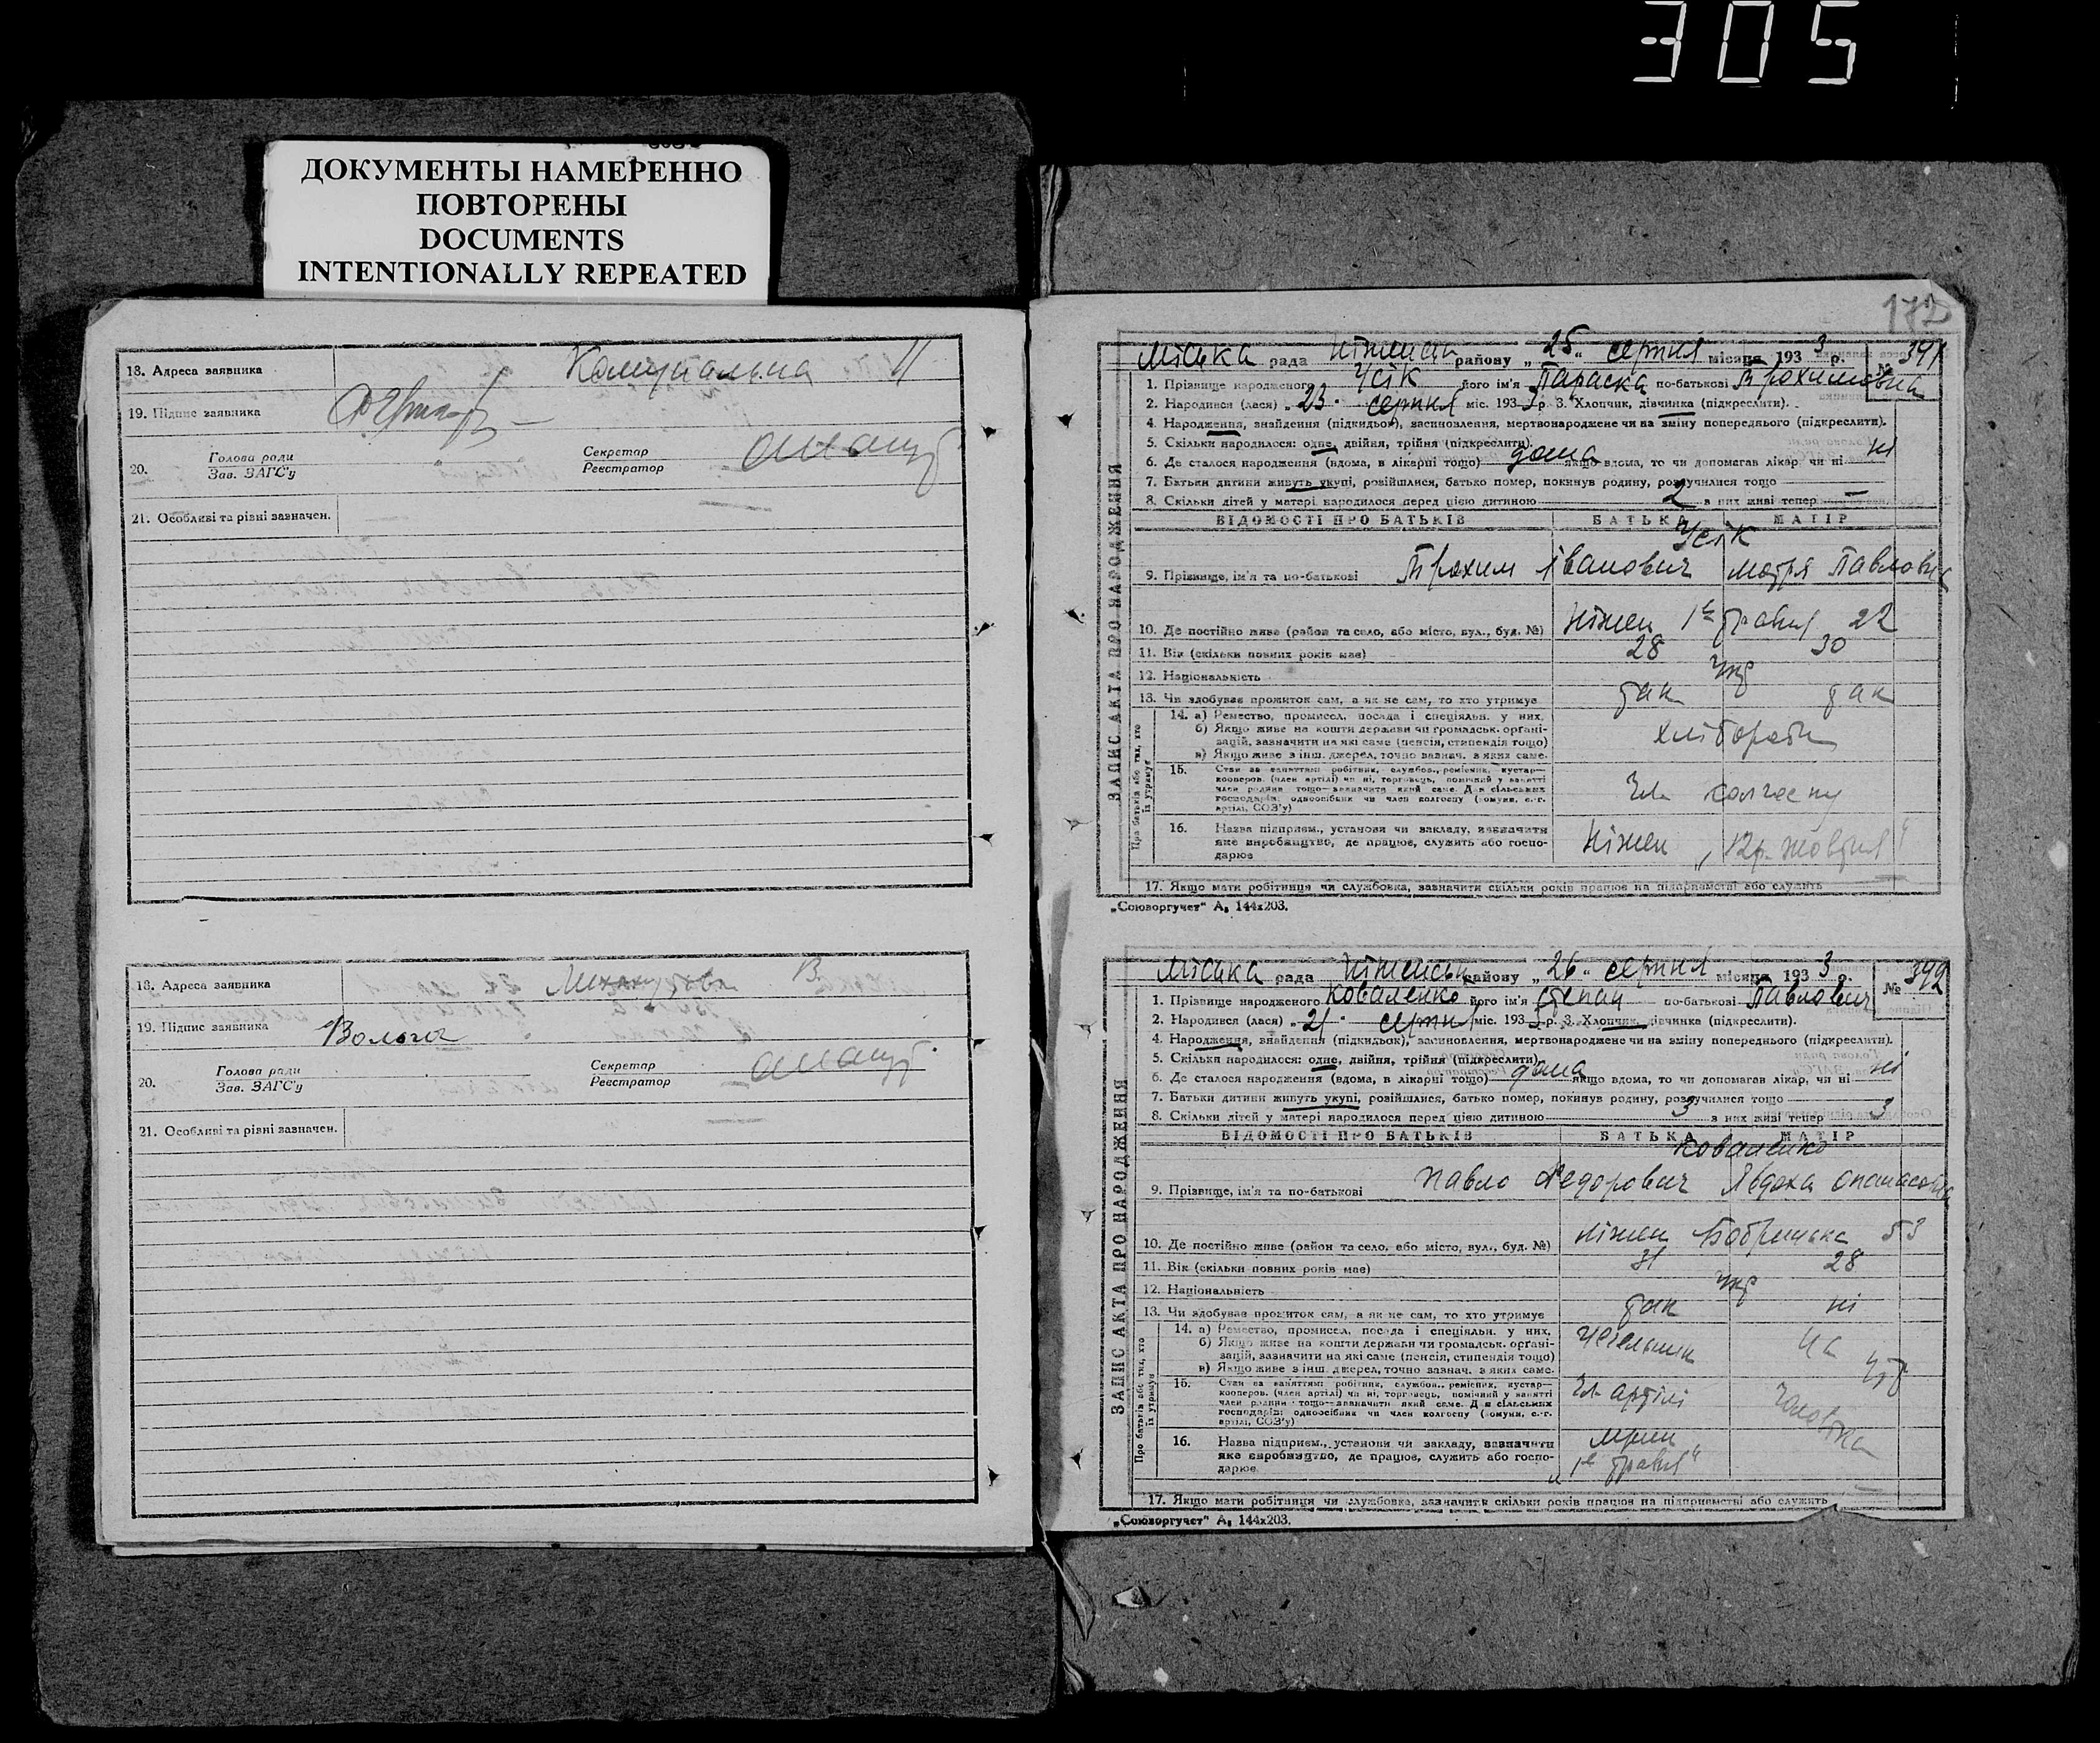 305
ДОКУМЕНТЫ НАМЕРЕННО
ПОВТОРЕНЫ
DOCUMENTS
INTENTIONALLY REPEATED
18. Адреса заявника Комунальна 11
19. Підпис заявника
20. Голова ради Секретар
Зав. ЗАГС'у Реєстратор
21. Особливі та рівні зазначен.
18. Адреса заявника
19. Підпис заявника Вольга
20. Голова ради Секретар
Зав. ЗАГС'у Реєстратор
21. Особливі та рівні зазначен.
172
ЗАПИС АКТА ПРО НАРОДЖЕННЯ
Міська рада Ніженськ району „25“ серпня місяця 1933 р. № 391
1. Прізвище народженого Усік його ім'я Параска по-батькові Трохимовна
2. Народився (лася) „23. серпня міс. 1933 р. 3. Хлопчик, дівчинка (підкреслити).
4. Народження, знайдення (підкидьок), засиновлення, мертвонароджене чи на зміну попереднього (підкреслити).
5. Скільки народилося: одне, двійня, трійня (підкреслити).
6. Де сталося народження (вдома, в лікарні тощо) дома якщо вдома, то чи допомагав лікар чи ні ні
7. Батьки дитини живуть укупі, розійшлися, батько помер, покинув родину, розлучилися тощо —
8. Скільки дітей у матері народилося перед цією дитиною 2 з них живі тепер —
ВІДОМОСТІ ПРО БАТЬКІВ БАТЬКА МАТІР
Усік
9. Прізвище, ім'я та по-батькові Трохим Іванович Мотря Павловна
10. Де постійно живе (район та село, або місто, вул., буд. №) Ніжен 1е травня 22
11. Вік (скільки повних років має) 28 30
12. Національність укр
13. Чи здобуває прожиток сам, а як не сам, то хто утримує так так
Про батьків або тих, хто їх утримує
14. а) Ремество, промисел, посада і спеціяльн. у них. хлібороби
б) Якщо живе на кошти держави чи громадськ. органі-
зацій, зазначити на які саме (пенсія, стипендія тощо)
в) Якщо живе з інш. джерел, точно вазнач. з яких саме.
15. Стан за заняттям: робітник, службов., ремісник, кустар—
кооперов. (член артілі) чи ні, торговець, помічний у занятті
член родини тощо—зазначити який саме. Для сільських
господарів: одноосібник чи член колгоспу (комуни, с.-г.
артілі, СОЗ'у) Чл. колгоспу
16. Назва підприєм., установи чи закладу, зазначити
яке виробництво, де працює, служить або госпо-
дарює Ніжен „12р. Жовтня“
17. Якщо мати робітниця чи службовка, зазначити скільки років працює на підприємстві або служить —
„Союзоргучет“ А₅ 144х203.
ЗАПИС АКТА ПРО НАРОДЖЕННЯ
Міська рада Ніженськ району „26“ серпня місяця 1933 р. № 392
1. Прізвище народженого Коваленко його ім'я Степан по-батькові Павлович
2. Народився (лася) „21. серпня міс. 1933 р. 3. Хлопчик, дівчинка (підкреслити).
4. Народження, знайдення (підкидьок), засиновлення, мертвонароджене чи на зміну попереднього (підкреслити).
5. Скільки народилося: одне, двійня, трійня (підкреслити)
6. Де сталося народження (вдома, в лікарні тощо) дома якщо вдома, то чи допомагав лікар, чи ні ні
7. Батьки дитини живуть укупі, розійшлися, батько помер, покинув родину, розлучилися тощо —
8. Скільки дітей у матері народилося перед цією дитиною 3 з них живі тепер 3
ВІДОМОСТІ ПРО БАТЬКІВ БАТЬКА МАТІР
Коваленко
9. Прізвище, ім'я та по-батькові Павло Федорович Явдоха Опанасовна
10. Де постійно живе (район та село, або місто, вул., буд. №) Ніжен 53
11. Вік (скільки повних років має) 31 28
12. Національність укр
13. Чи здобуває прожиток сам, а як не сам, то хто утримує так ні
Про батьків або тих, хто їх утримує
14. а) Ремество, промисел, посада і спеціяльн. у них. на утр
б) Якщо живе на кошти держави чи громадськ. органі-
зацій, зазначити на які саме (пенсія, стипендія тощо)
в) Якщо живе з інш. джерел, точно вазнач. з яких саме.
15. Стан за заняттям: робітник, службов., ремісник, кустар—
кооперов. (член артілі) чи ні, торговець, помічний у занятті
член родини тощо—зазначити який саме. Для сільських
господарів: одноосібник чи член колгоспу (комуни, с.-г.
артілі, СОЗ'у) Чл. артілі чоловіка
16. Назва підприєм., установи чи закладу, зазначити
яке виробництво, де працює, служить або госпо-
дарює „1е травня“
17. Якщо мати робітниця чи службовка, зазначити скільки років працює на підприємстві або служить —
„Союзоргучет“ А₅ 144х203.